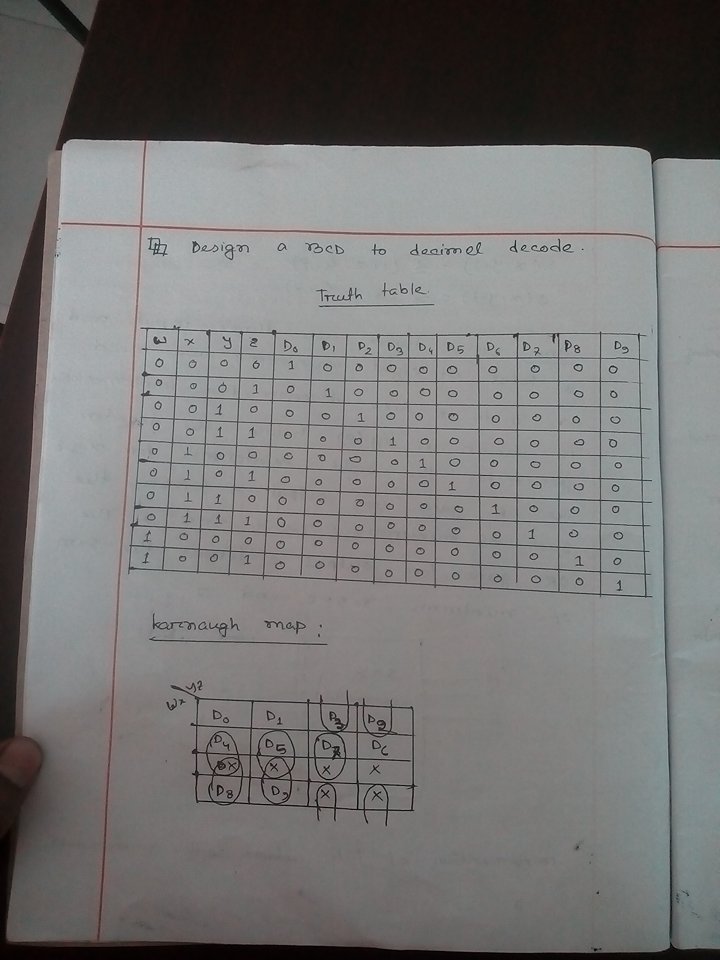 Design a BCD to decimel decode.
Truth table
w x y z D0 D1 D2 D3 D4 D5 D6 D7 D8 D9
0 0 0 0 1 0 0 0 0 0 0 0 0 0
0 0 0 1 0 1 0 0 0 0 0 0 0 0
0 0 1 0 0 0 1 0 0 0 0 0 0 0
0 0 1 1 0 0 0 1 0 0 0 0 0 0
0 1 0 0 0 0 0 0 1 0 0 0 0 0
0 1 0 1 0 0 0 0 0 1 0 0 0 0
0 1 1 0 0 0 0 0 0 0 1 0 0 0
0 1 1 1 0 0 0 0 0 0 0 1 0 0
1 0 0 0 0 0 0 0 0 0 0 0 1 0
1 0 0 1 0 0 0 0 0 0 0 0 0 1
karnaugh map:
yz
wx
D0 D1 D3 D2
D4 D5 D7 D6
X X X
D8 D9 X X